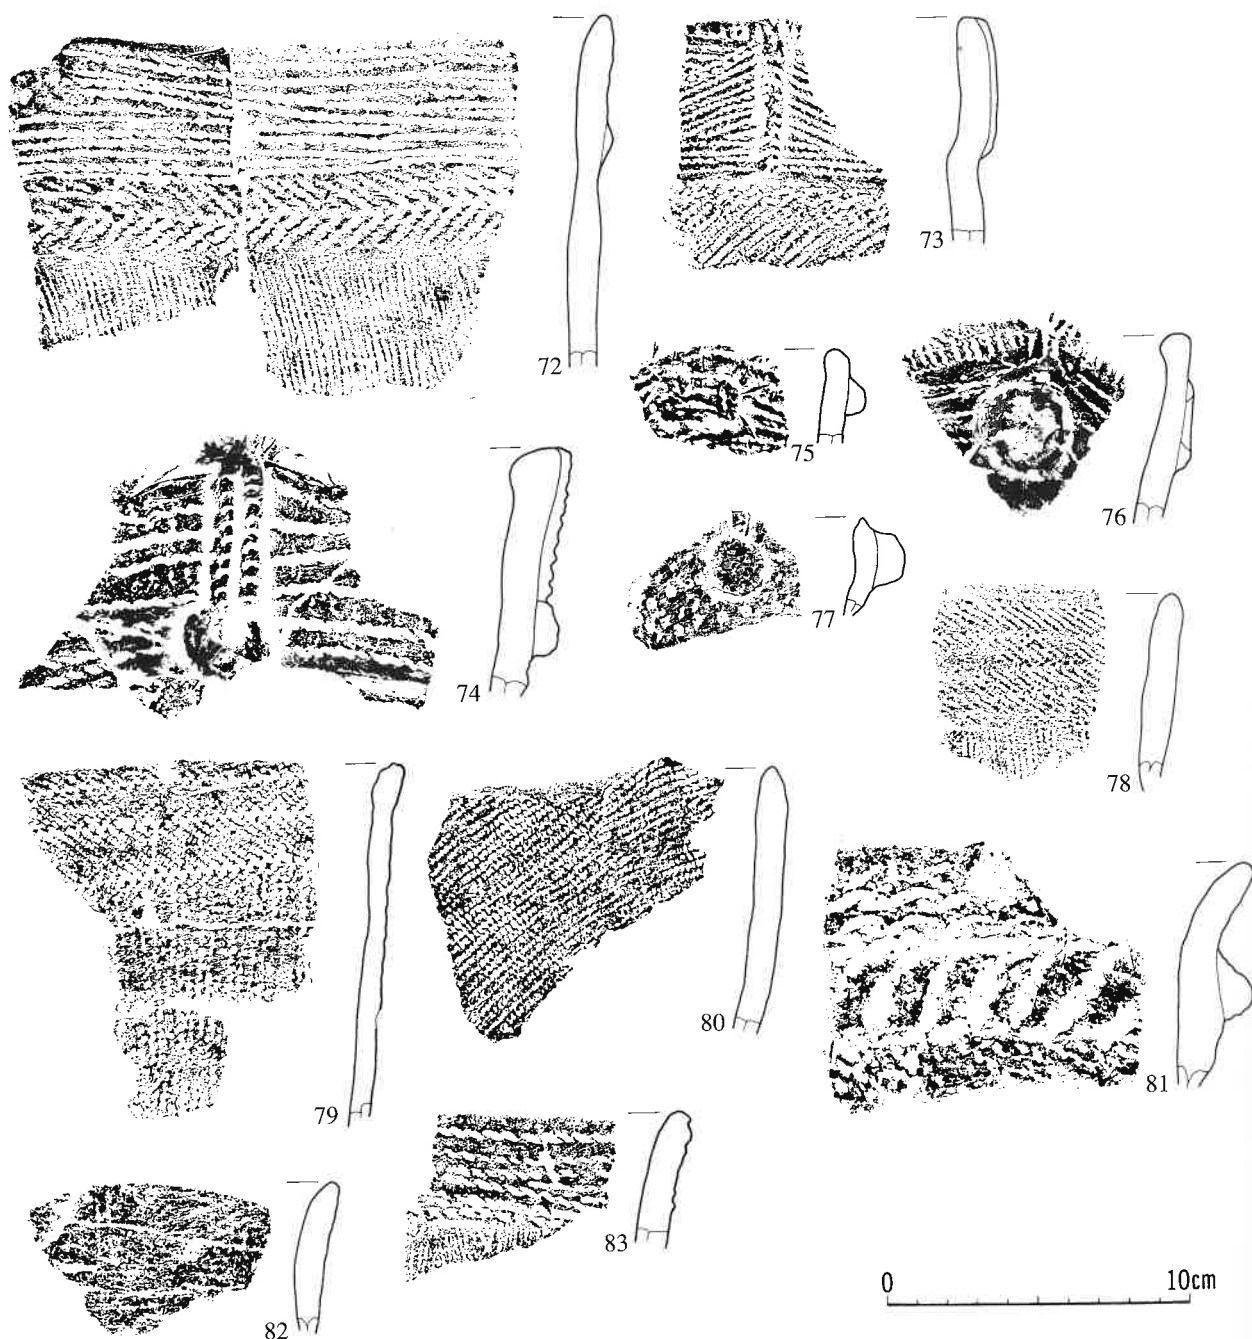 72
73
75
76
74
77
78
79
80
81
82
83
0 10cm